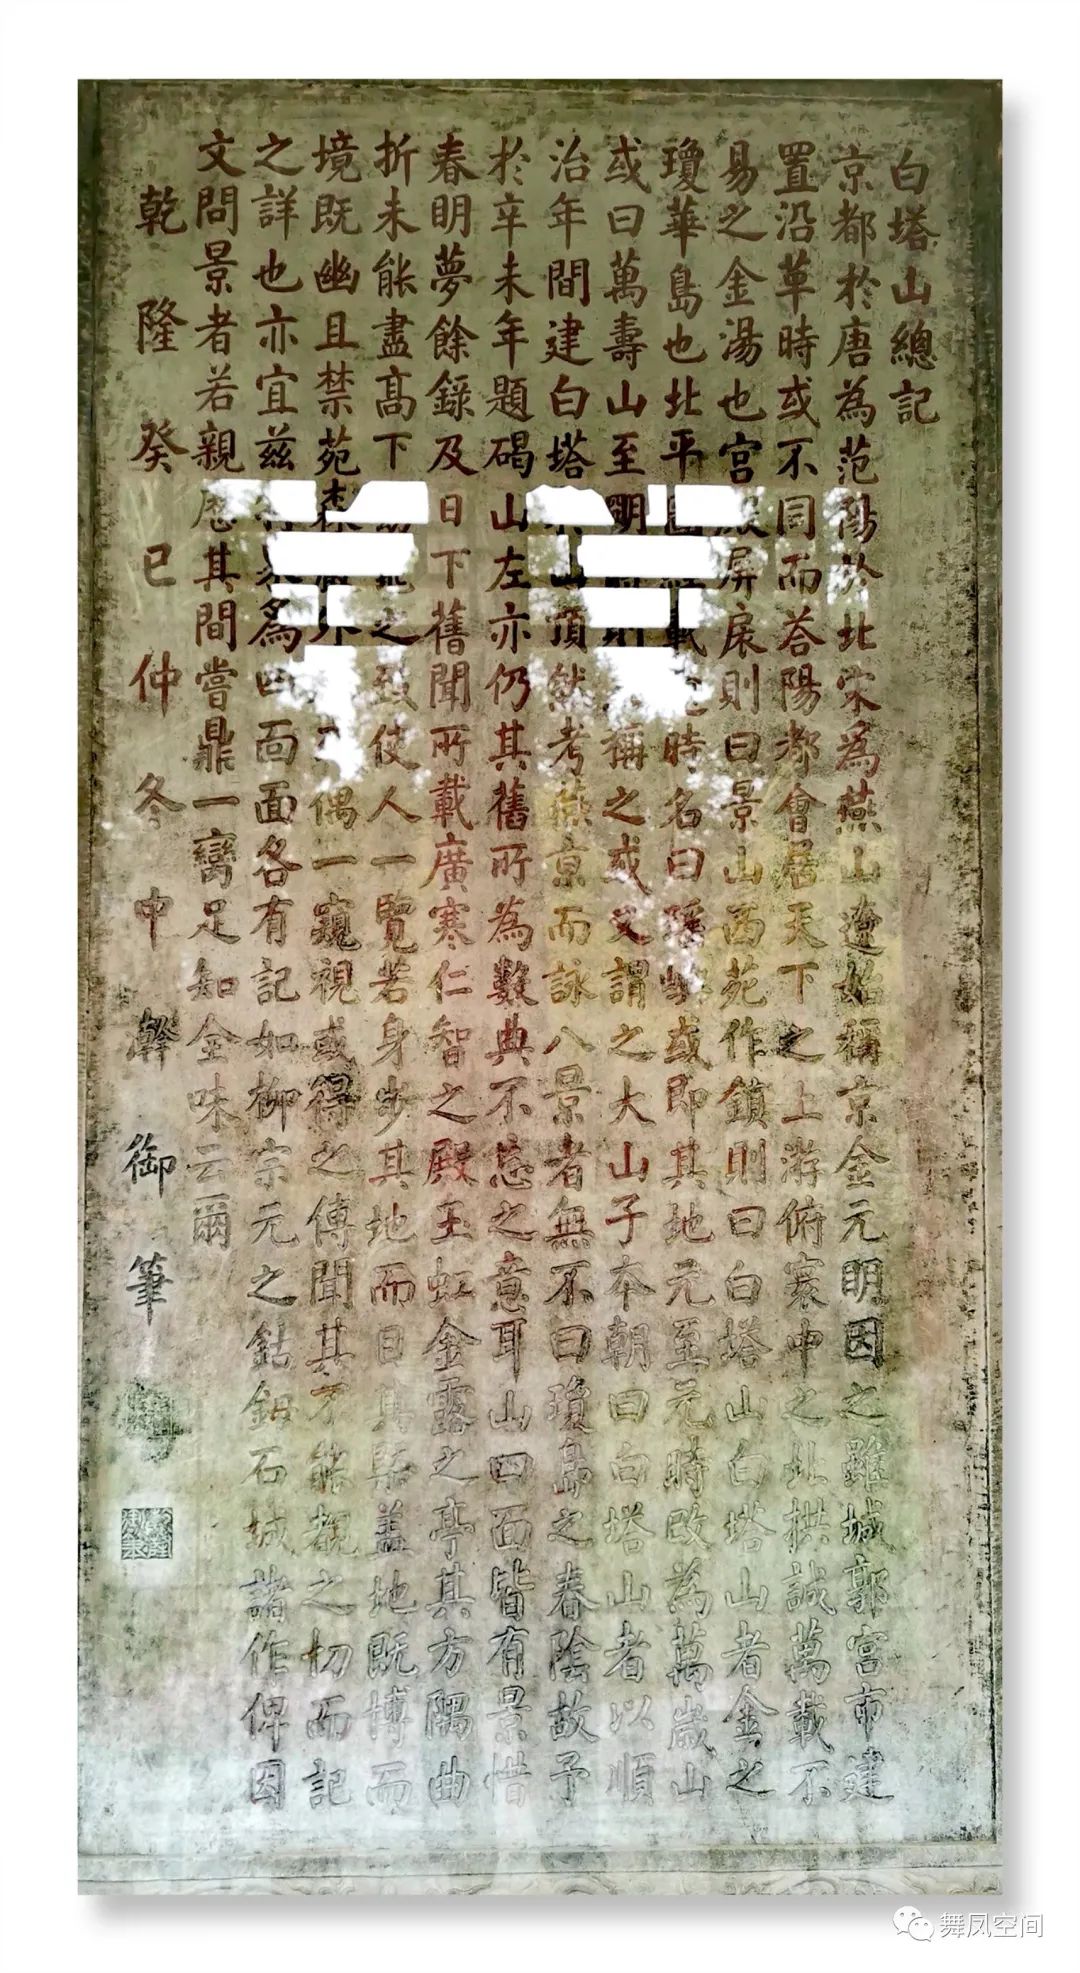 白塔山總記
京都於唐為范陽於北宋為燕山遼始稱京金元明因之雖城郭宮市建
置沿革時或不同而荅陽都會居天下之上游俯寰中之北拱誠萬載不
易之金湯也宮殿屏扆則曰景山西苑作鎮則曰白塔山白塔山者金之
瓊華島也北平圖經載遼時名曰瑤嶼或即其地元至元時改為萬歲山
或曰萬壽山至明時則稱之或又謂之大山子本朝曰白塔山者以順
治年間建白塔山頂然考燕京而詠八景者無不曰瓊島之春陰故予
於辛未年題碣山左亦仍其舊所為數典不忘之意耳山四面皆有景惜
春明夢餘錄及日下舊聞所載廣寒仁智之殿玉虹金露之亭其方隅曲
折未能盡高下之致使人一覽若身步其地而目其概蓋地既博而
境既幽且禁苑森偶一窺視或得之傳聞其不能覩之切而記
之詳也亦宜茲為四面面各有記如柳宗元之鈷鉧石城諸作俾因
文問景者若親歷其間嘗鼎一臠足知全味云爾
乾隆癸巳仲冬中澣御筆
舞凤空间